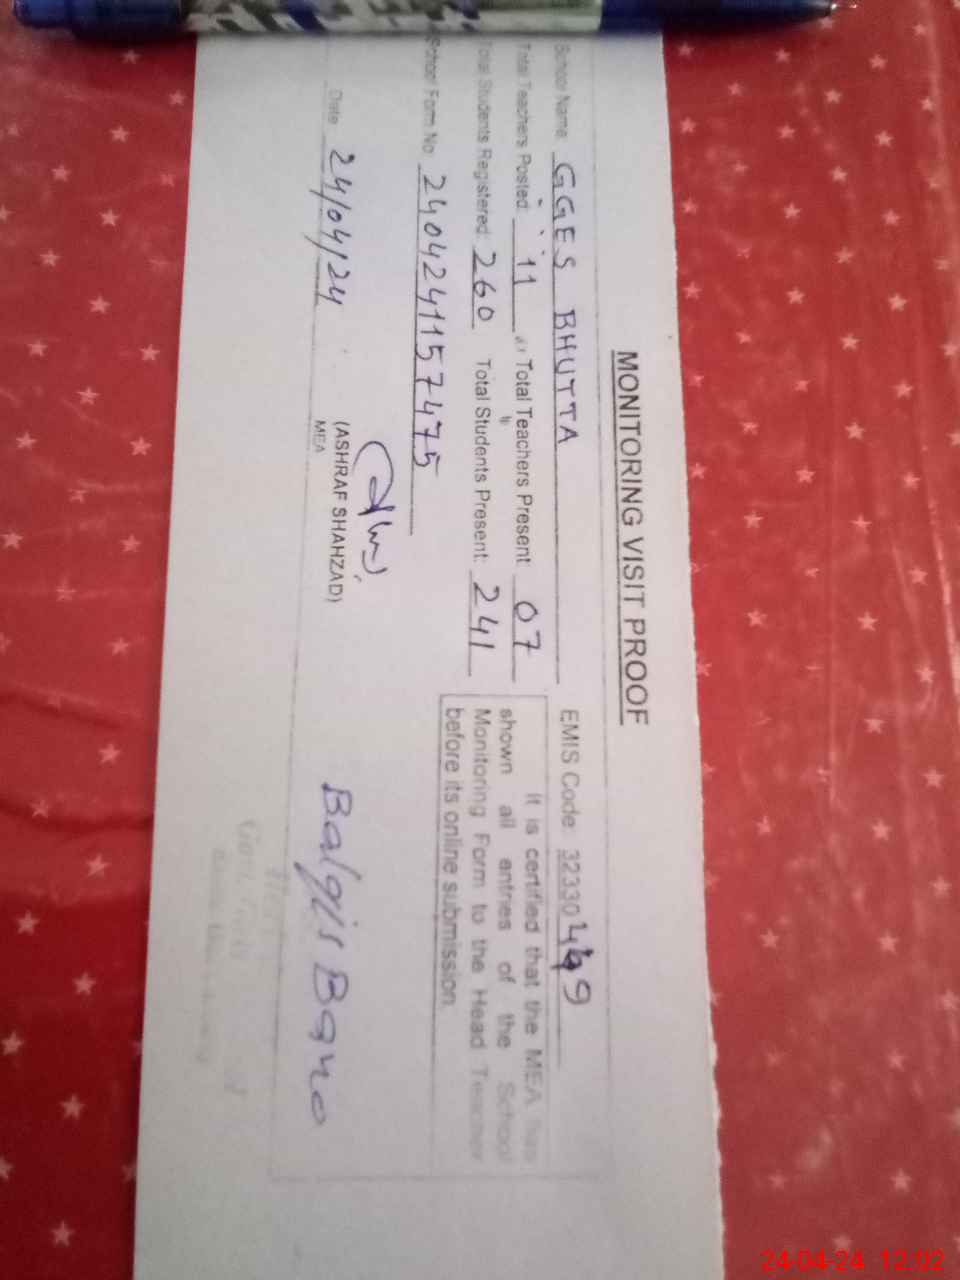 MONITORING VISIT PROOF
School Name: GGES BHUTTA EMIS Code: 32330449
Total Teachers Posted: 11 Total Teachers Present: 07
Total Students Registered: 260 Total Students Present: 241
School Form No: 2404241157475
It is certified that the MEA has
shown all entries of the School
Monitoring Form to the Head Teacher
before its online submission.
Date 24/04/24
(ASHRAF SHAHZAD)
MEA
Balqis Bano
24-04-24 12:02